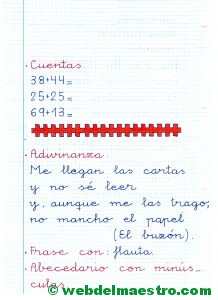 · Cuentas.
38+44=
25+25=
69+13=
· Adivinanza.
Me llegan las cartas
y no sé leer
y, aunque me las trago,
no mancho el papel
(El buzón).
· Frase con: flauta.
· Abecedario con minús_
culas.
© webdelmaestro.com